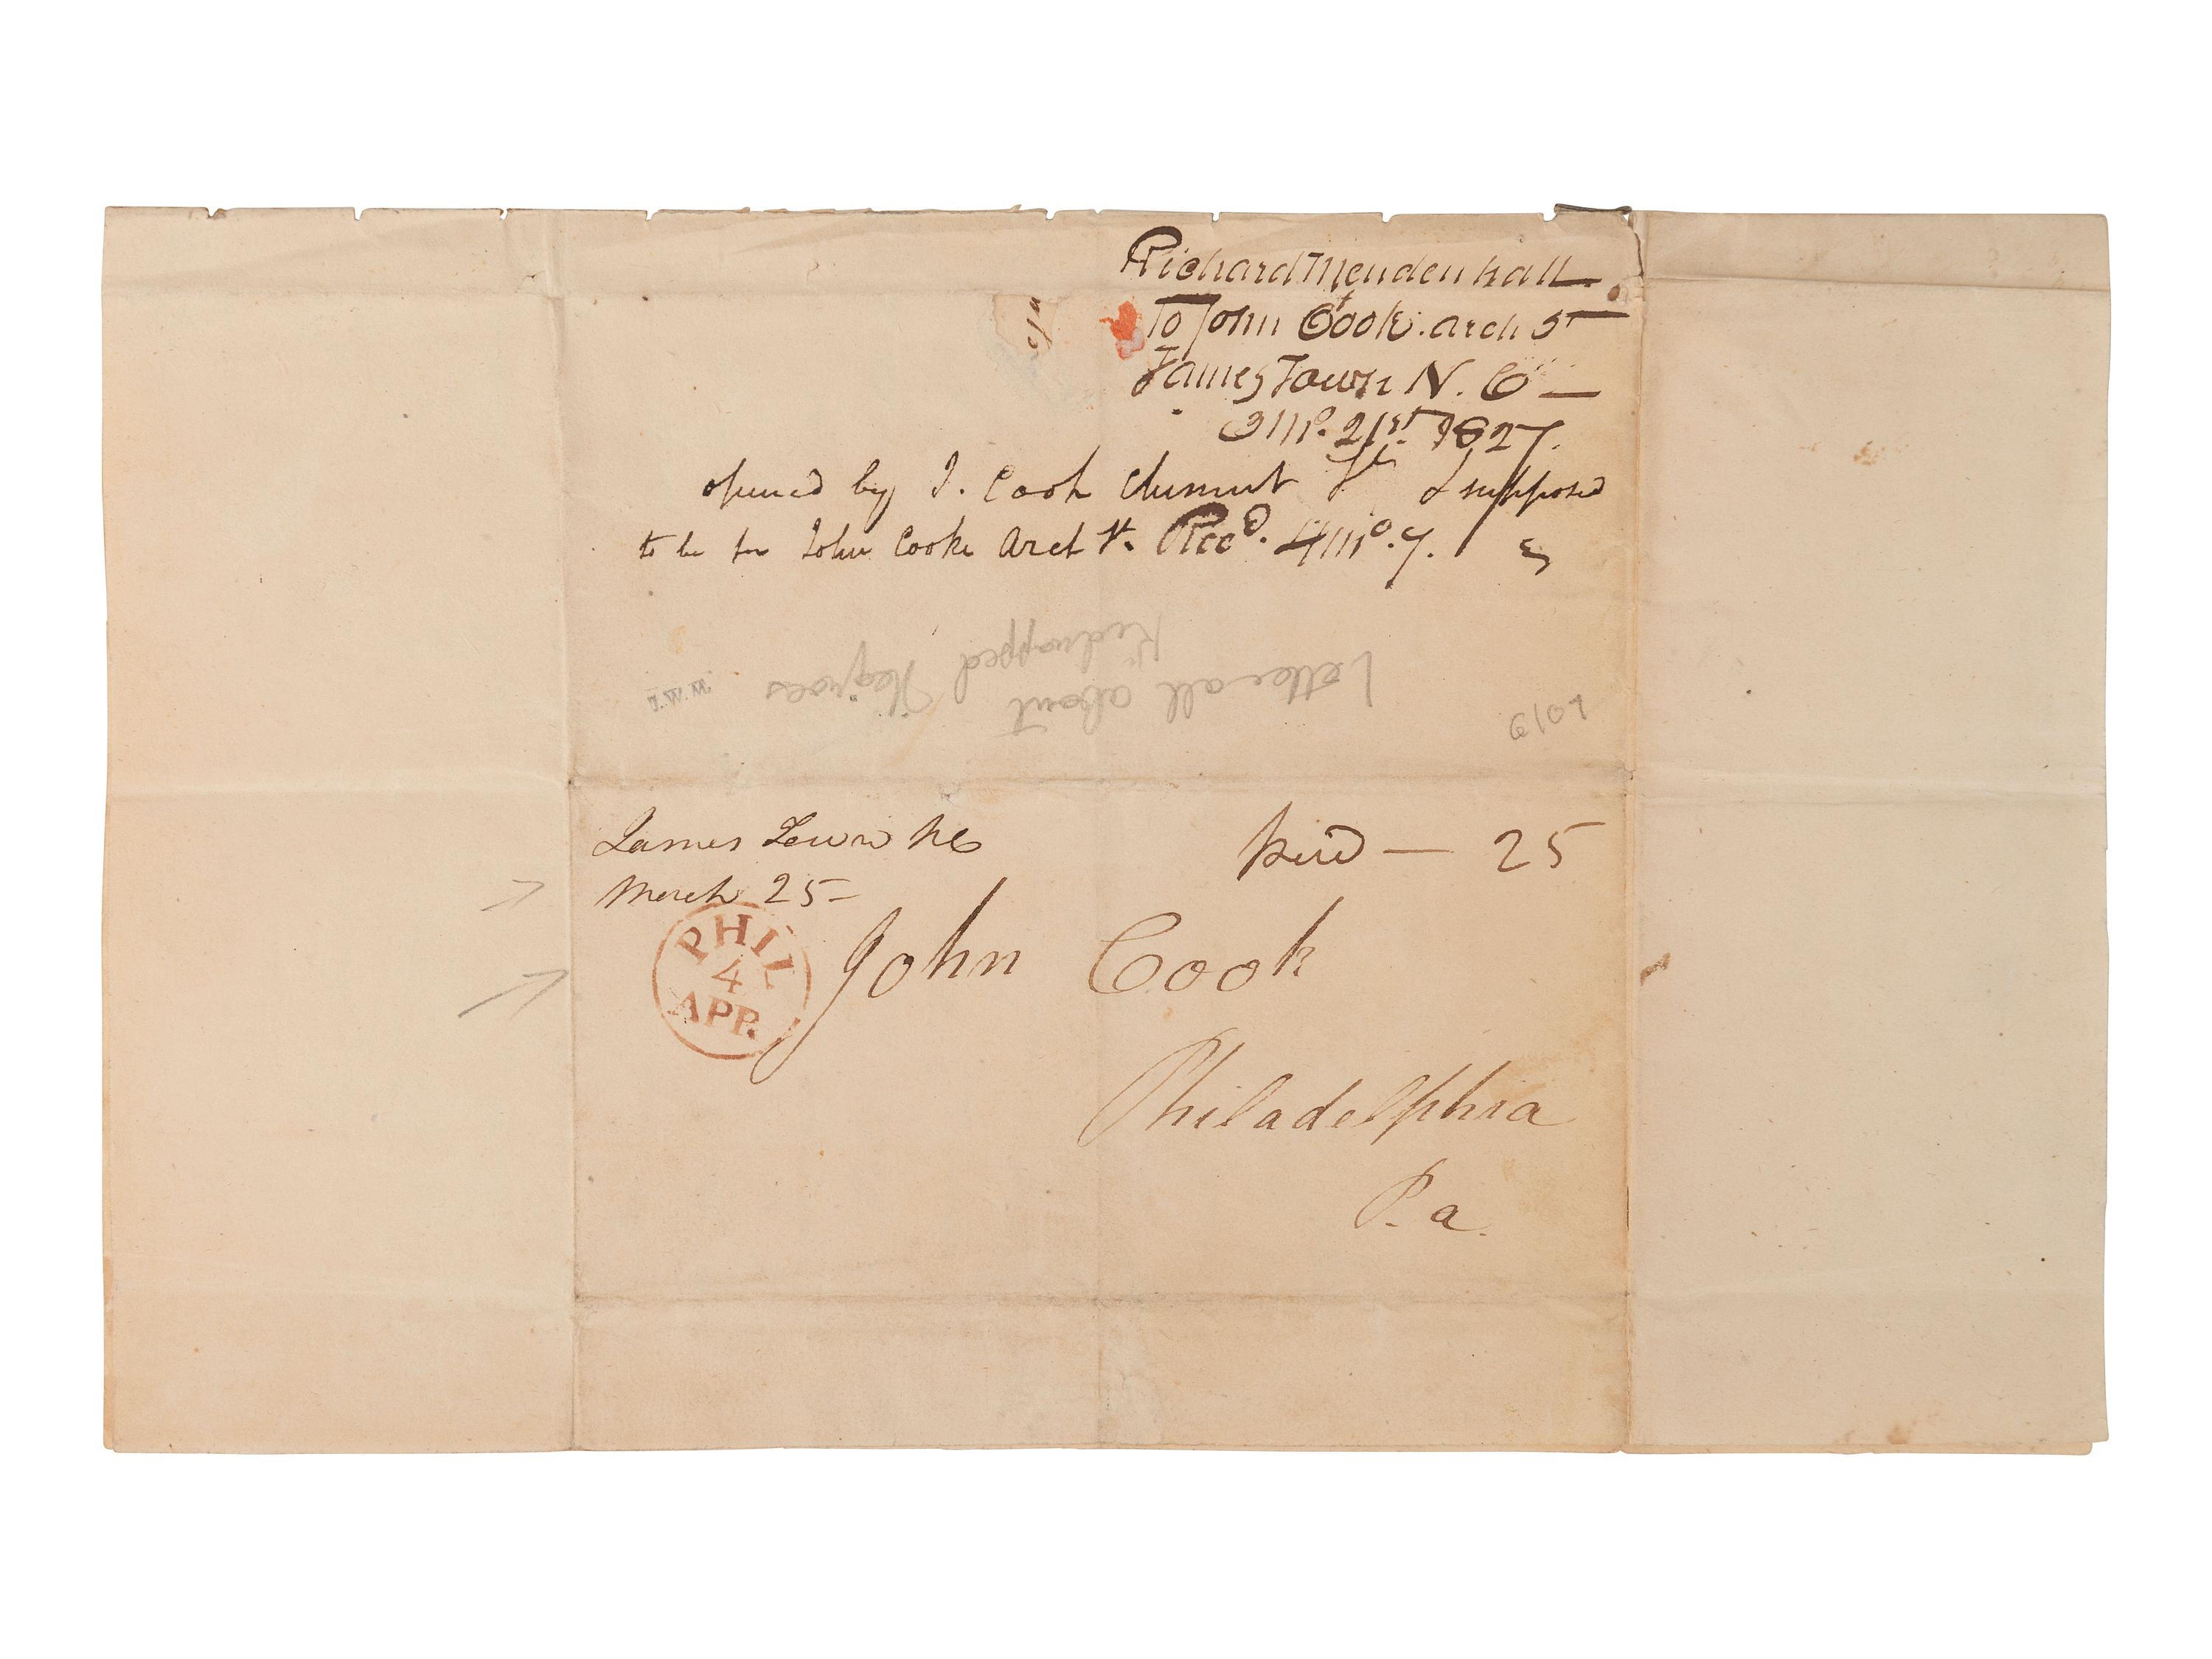 Richard Mendenhall
To John Cook. arch St
James Town N. C —
3mo. 21st. 1827.
opened by J. Cook Chesnut St & supposed
to be for John Cooke Arch St. Recd. 4mo. 7.
Letter all about
Kidnapped Negroes
W.W.L
James Town NC
March 25 –
paid — 25
PHIL
4
APR.
John Cook
Philadelphia
P. a.